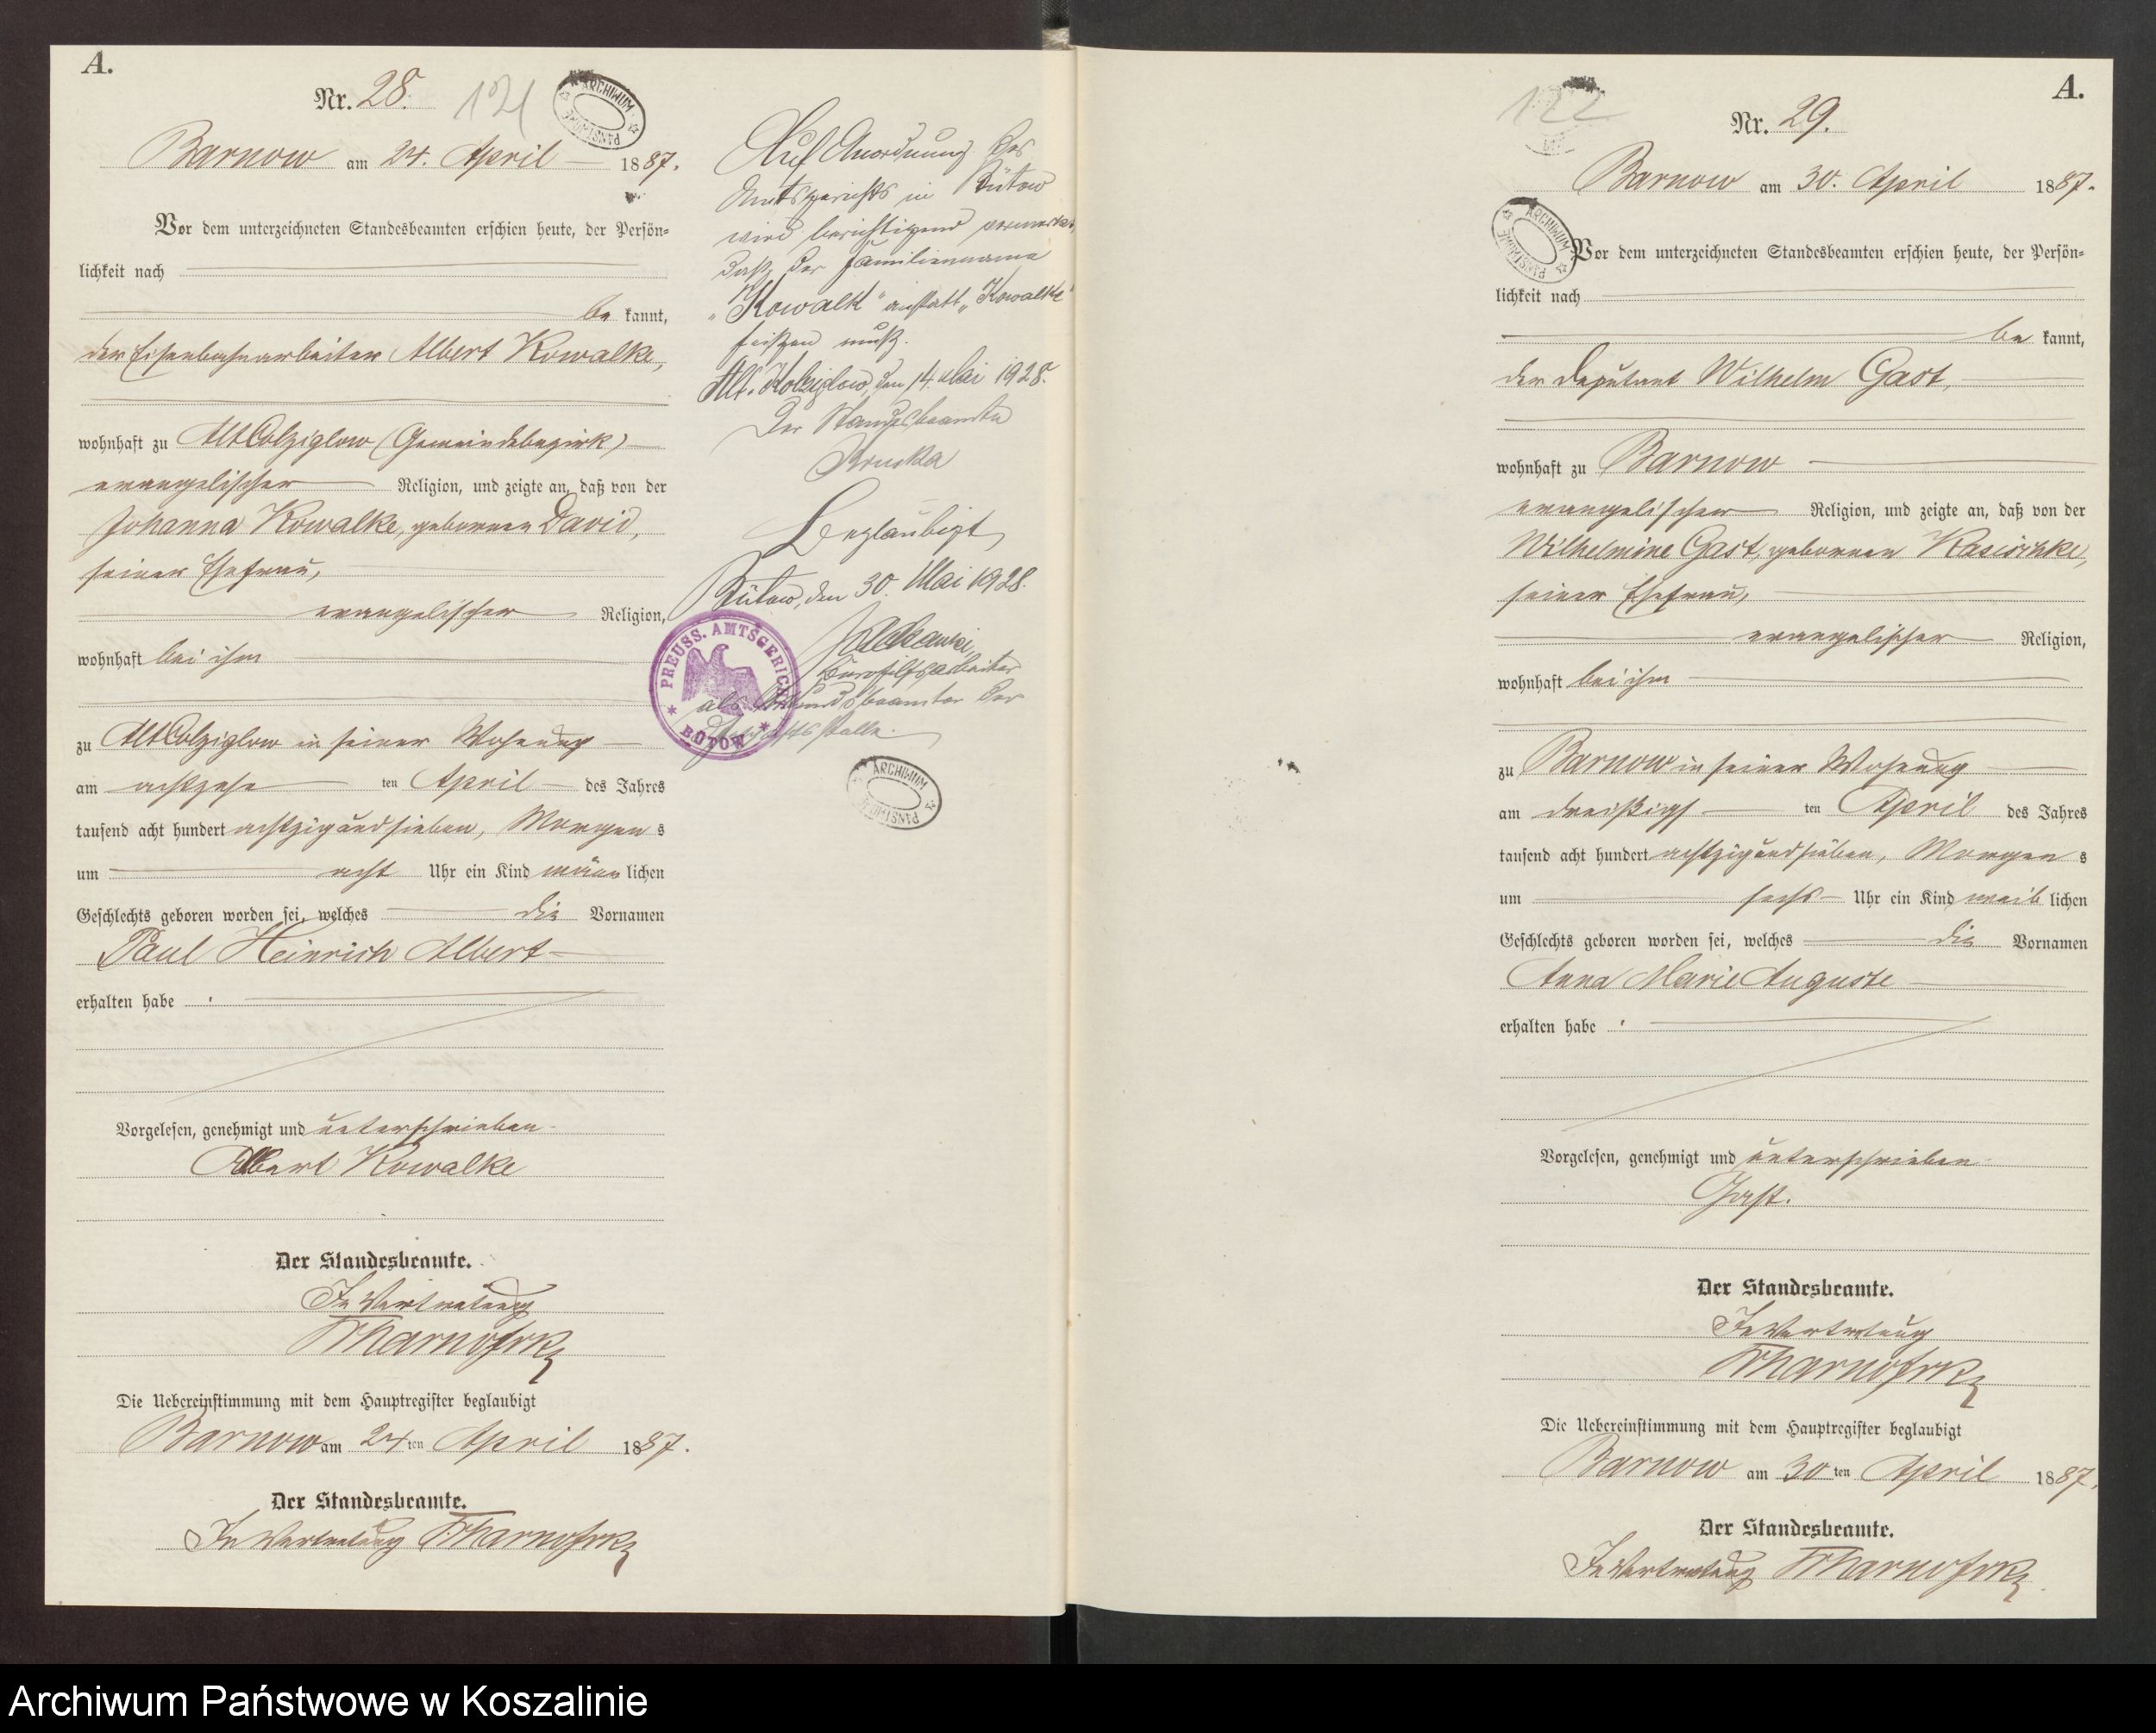 A.
Nr. 28.
121
ARCHIWUM PAŃSTWOWE
Barnow am 24. April 1887.
Vor dem unterzeichneten Standesbeamten erschien heute, der Persön-
lichkeit nach
be kannt,
der Eisenbahnarbeiter Albert Kowalke,
wohnhaft zu Alt Colziglow (Gemeindebezirk)
evangelischer Religion, und zeigte an, daß von der
Johanna Kowalke, geborenen David,
seiner Ehefrau,
evangelischer Religion,
wohnhaft bei ihm
zu Alt Colziglow in seiner Wohnung
am achtzehn ten April des Jahres
tausend acht hundert achtzig und sieben, Morgen s
um acht Uhr ein Kind männ lichen
Geschlechts geboren worden sei, welches die Vornamen
Paul Heinrich Albert
erhalten habe.
Vorgelesen, genehmigt und unterschrieben.
Albert Kowalke
Der Standesbeamte.
In Vertretung
Die Uebereinstimmung mit dem Hauptregister beglaubigt
Barnow am 24 ten April 1887.
Der Standesbeamte.
In Vertretung
Auf Anordnung des
Amtsgerichts in Bütow
wird berichtigend vermerkt,
daß der Familienname
„Kowalk“ anstatt „Kowalke“
heißen muß.
Alt-Kolziglow, den 14. Mai 1928.
Der Standesbeamte
Beglaubigt
Bütow, den 30. Mai 1928.
Bürohilfsarbeiter
als Urkundsbeamter der
Geschäftsstelle.
PREUSS. AMTSGERICHT
BÜTOW
ARCHIWUM PAŃSTWOWE
A.
122
Nr. 29.
Barnow am 30. April 1887.
ARCHIWUM PAŃSTWOWE
Vor dem unterzeichneten Standesbeamten erschien heute, der Persön-
lichkeit nach
be kannt,
der Deputant Wilhelm Gast,
wohnhaft zu Barnow
evangelischer Religion, und zeigte an, daß von der
Wilhelmine Gast, geborenen Kasischke,
seiner Ehefrau,
evangelischer Religion,
wohnhaft bei ihm
zu Barnow in seiner Wohnung
am dreißigs ten April des Jahres
tausend acht hundert achtzig und sieben, Morgen s
um sechs Uhr ein Kind weib lichen
Geschlechts geboren worden sei, welches die Vornamen
Anna Marie Auguste
erhalten habe.
Vorgelesen, genehmigt und unterschrieben.
Gast.
Der Standesbeamte.
In Vertretung
Die Uebereinstimmung mit dem Hauptregister beglaubigt
Barnow am 30 ten April 1887.
Der Standesbeamte.
In Vertretung
Archiwum Państwowe w Koszalinie